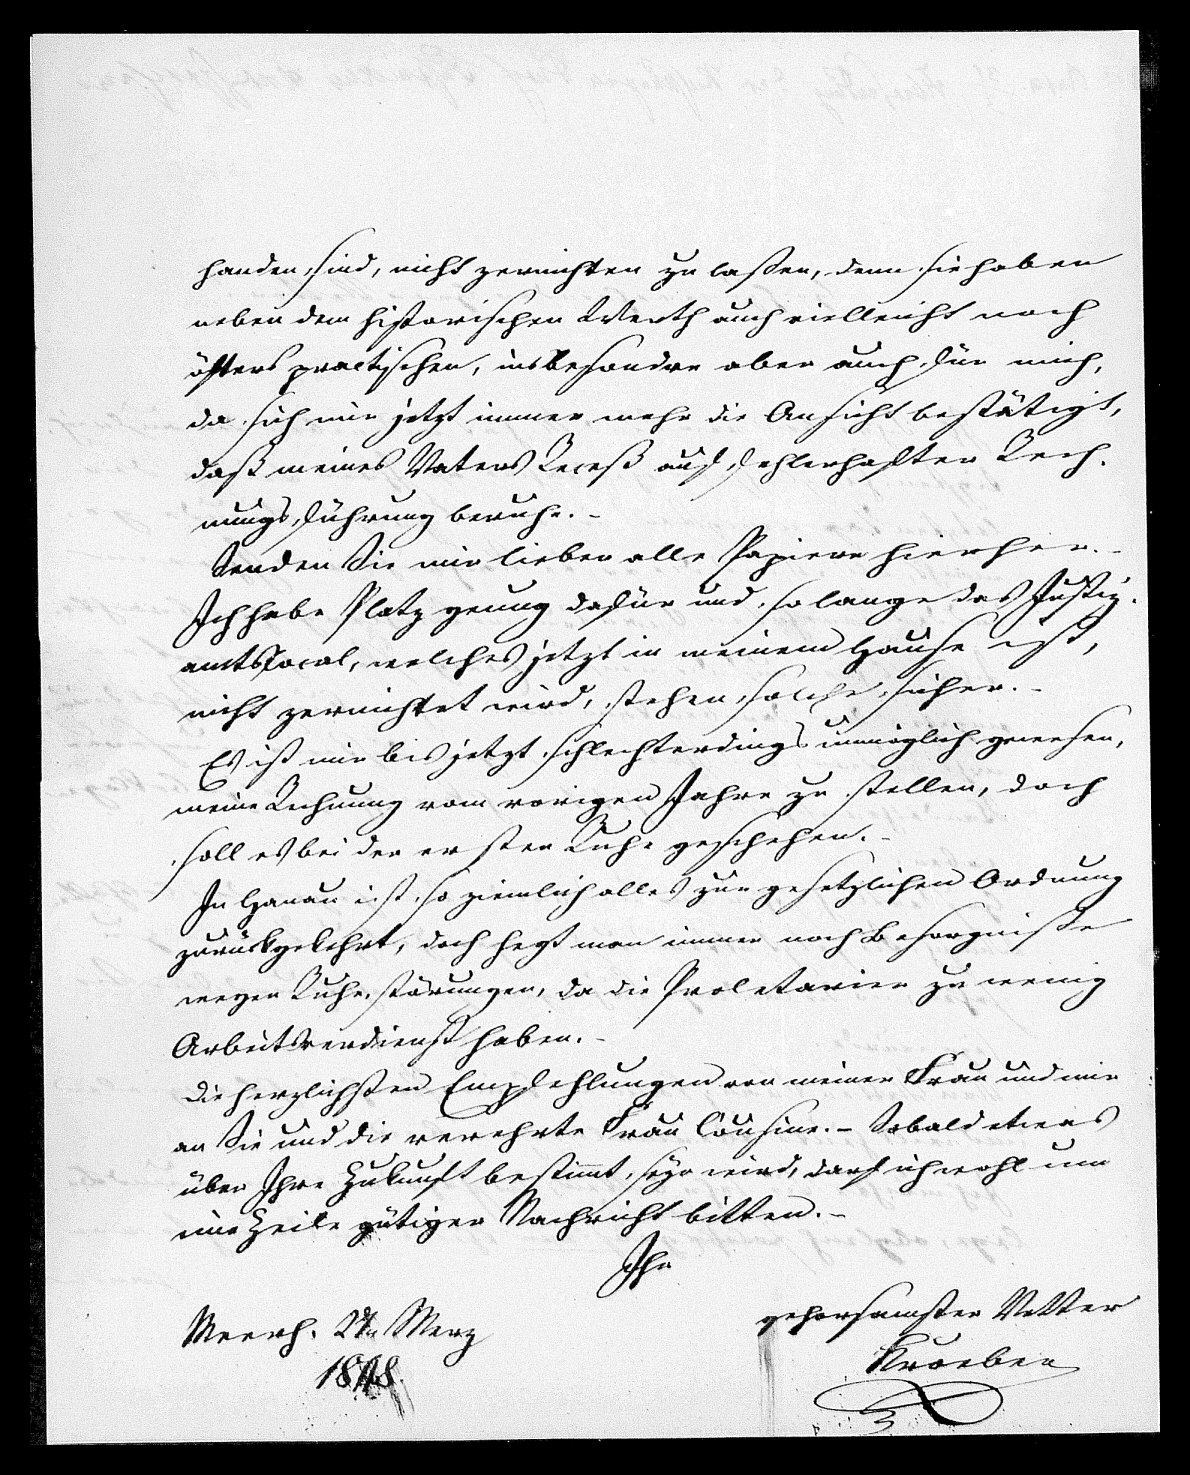 handen sind, nicht zernichten zu lassen, denn sie haben
neben dem historischen Werth auch vielleicht noch
öfters practischen, insbesondre aber auch für mich,
da sich mir jetzt immer mehr die Ansicht bestätigt,
daß meines Vaters Receß auf fehlerhafter Rech-
nungsführung beruhe. –
Senden Sie mir lieber alle Papiere hierher. –
Ich habe Platz genug dafür und so lange das Justiz-
amtslocal, welches jetzt in meinem Hause ist,
nicht zernichtet wird, stehen solche sicher. –
Es ist mir bis jetzt schlechterdings unmöglich gewesen,
meine Rechnung vom vorigen Jahre zu stellen, doch
soll es bei der ersten Ruhe geschehen. –
In Hanau ist so ziemlich alles zur gesetzlichen Ordnung
zurückgekehrt, doch hegt man immer noch Besorgnisse
wegen Ruhestörungen, da die Proletarier zu wenig
Arbeitsverdienst haben. –
Die herzlichsten Empfehlungen von meiner Frau und mir
an Sie und die verehrte Frau Cousine. – Sobald etwas
über Ihre Zukunft bestimmt seyn wird, darf ich wohl um
eine Zeile gütiger Nachricht bitten. –
Ihr
gehorsamster Vetter
Meerh. Merz
1848.